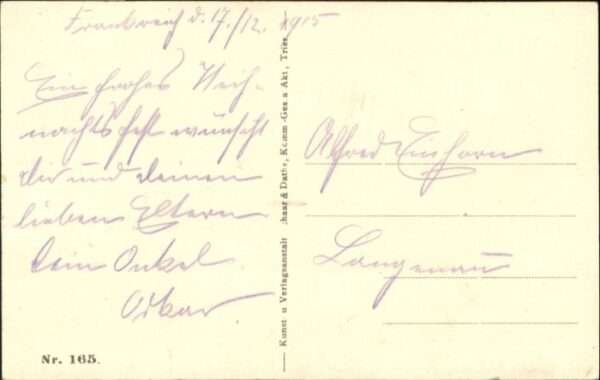 Frankreich d. 17./12. 1915
Ein frohes Weih-
nachtsfest wünscht
dir und deinen
lieben Eltern
dein Onkel
Oskar
Nr. 165.
Kunst u Verlagsanstalt Schaar & Dathe, Komm-Ges. a Akt, Trier
Alfred Einhorn
Langenau